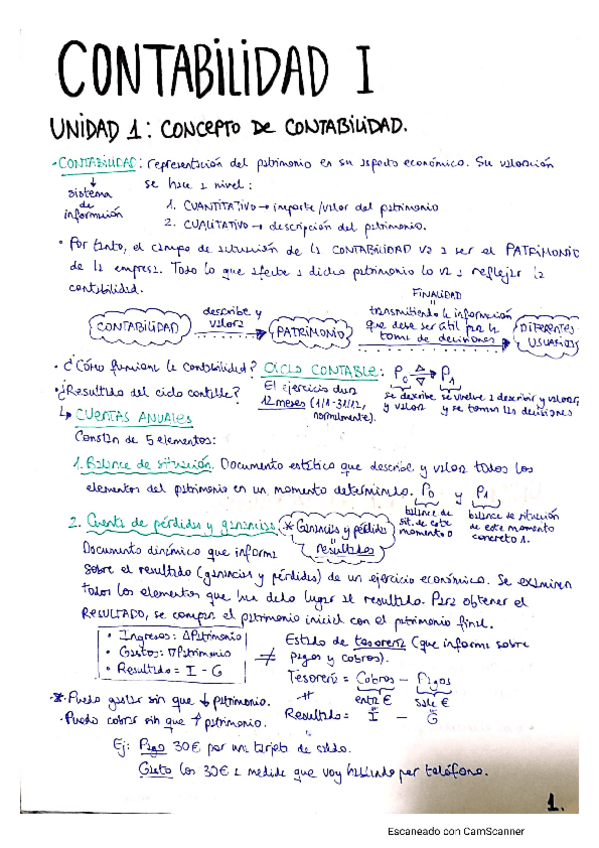 CONTABILIDAD I
UNIDAD 1: CONCEPTO DE CONTABILIDAD.
· CONTABILIDAD: representación del patrimonio en su aspecto económico. Su valoración
↓ se hace a nivel:
sistema de información
1. CUANTITATIVO → importe/valor del patrimonio
2. CUALITATIVO → descripción del patrimonio.
· Por tanto, el campo de actuación de la CONTABILIDAD va a ser el PATRIMONIO
de la empresa. Todo lo que afecte a dicho patrimonio lo va a reflejar la
contabilidad.
FINALIDAD
=
CONTABILIDAD
describe y valora
PATRIMONIO
transmitiendo la información
que debe ser útil para la
toma de decisiones
DIFERENTES USUARIOS
· ¿Cómo funciona la contabilidad? CICLO CONTABLE: P0 △▽ → P1
· ¿Resultado del ciclo contable?
El ejercicio dura
12 meses (1/1-31/12,
normalmente).
se describe y valora
se vuelve a describir y valorar,
y se toman las decisiones
↳ CUENTAS ANUALES
Constan de 5 elementos:
1. Balance de situación. Documento estático que describe y valora todos los
elementos del patrimonio en un momento determinado. P0 y P1
balance de sit. de este momento 0
balance de situación de este momento concreto 1.
2. Cuenta de pérdidas y ganancias (* Ganancias y pérdidas = resultados)
Documento dinámico que informa
sobre el resultado (ganancias y pérdidas) de un ejercicio económico. Se examinan
todos los elementos que han dado lugar al resultado. Para obtener el
RESULTADO, se compara el patrimonio inicial con el patrimonio final.
· Ingresos: △Patrimonio
· Gastos: ▽Patrimonio
· Resultado = I - G
≠
Estado de tesorería (que informa sobre
pagos y cobros).
Tesorería = Cobros - Pagos
≠ entra € sale €
Resultado = I - G
* · Puedo gastar sin que ↓ patrimonio.
· Puedo cobrar sin que ↑ patrimonio.
Ej: Pago 30€ por una tarjeta de saldo.
Gasto los 30€ a medida que voy hablando por teléfono.
1.
Escaneado con CamScanner